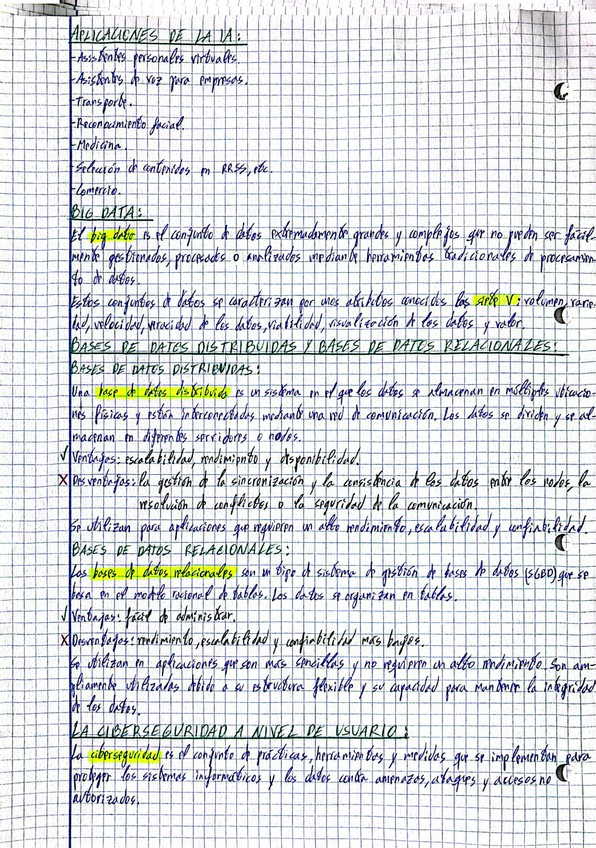 APLICACIONES DE LA IA:
-Asistentes personales virtuales.
-Asistentes de voz para empresas.
-Transporte.
-Reconocimiento facial.
-Medicina.
-Selección de contenidos en RRSS, etc.
-Comercio.
BIG DATA:
El big data es el conjunto de datos extremadamente grandes y complejos que no pueden ser fácil-
mente gestionados, procesados o analizados mediante herramientas tradicionales de procesamien-
to de datos.
Estos conjuntos de datos se caracterizan por unos atributos conocidos las siete V: volumen, varie-
dad, velocidad, veracidad de los datos, viabilidad, visualización de los datos y valor.
BASES DE DATOS DISTRIBUIDAS Y BASES DE DATOS RELACIONALES:
BASES DE DATOS DISTRIBUIDAS:
Una base de datos distribuida es un sistema en el que los datos se almacenan en múltiples ubicacio-
nes físicas y están interconectadas mediante una red de comunicación. Los datos se dividen y se al-
macenan en diferentes servidores o nodos.
✓ Ventajas: escalabilidad, rendimiento y disponibilidad.
X Desventajas: la gestión de la sincronización y la consistencia de los datos entre los nodos, la
resolución de conflictos o la seguridad de la comunicación.
Se utilizan para aplicaciones que requieren un alto rendimiento, escalabilidad y confiabilidad.
BASES DE DATOS RELACIONALES:
Las bases de datos relacionales son un tipo de sistema de gestión de bases de datos (SGBD) que se
basa en el modelo racional de tablas. Los datos se organizan en tablas.
✓ Ventajas: fácil de administrar.
X Desventajas: rendimiento, escalabilidad y confiabilidad más bajos.
Se utilizan en aplicaciones que son más sencillas y no requieren un alto rendimiento. Son am-
pliamente utilizadas debido a su estructura flexible y su capacidad para mantener la integridad
de los datos.
LA CIBERSEGURIDAD A NIVEL DE USUARIO:
La ciberseguridad es el conjunto de prácticas, herramientas y medidas que se implementan para
proteger los sistemas informáticos y los datos contra amenazas, ataques y accesos no
autorizados.